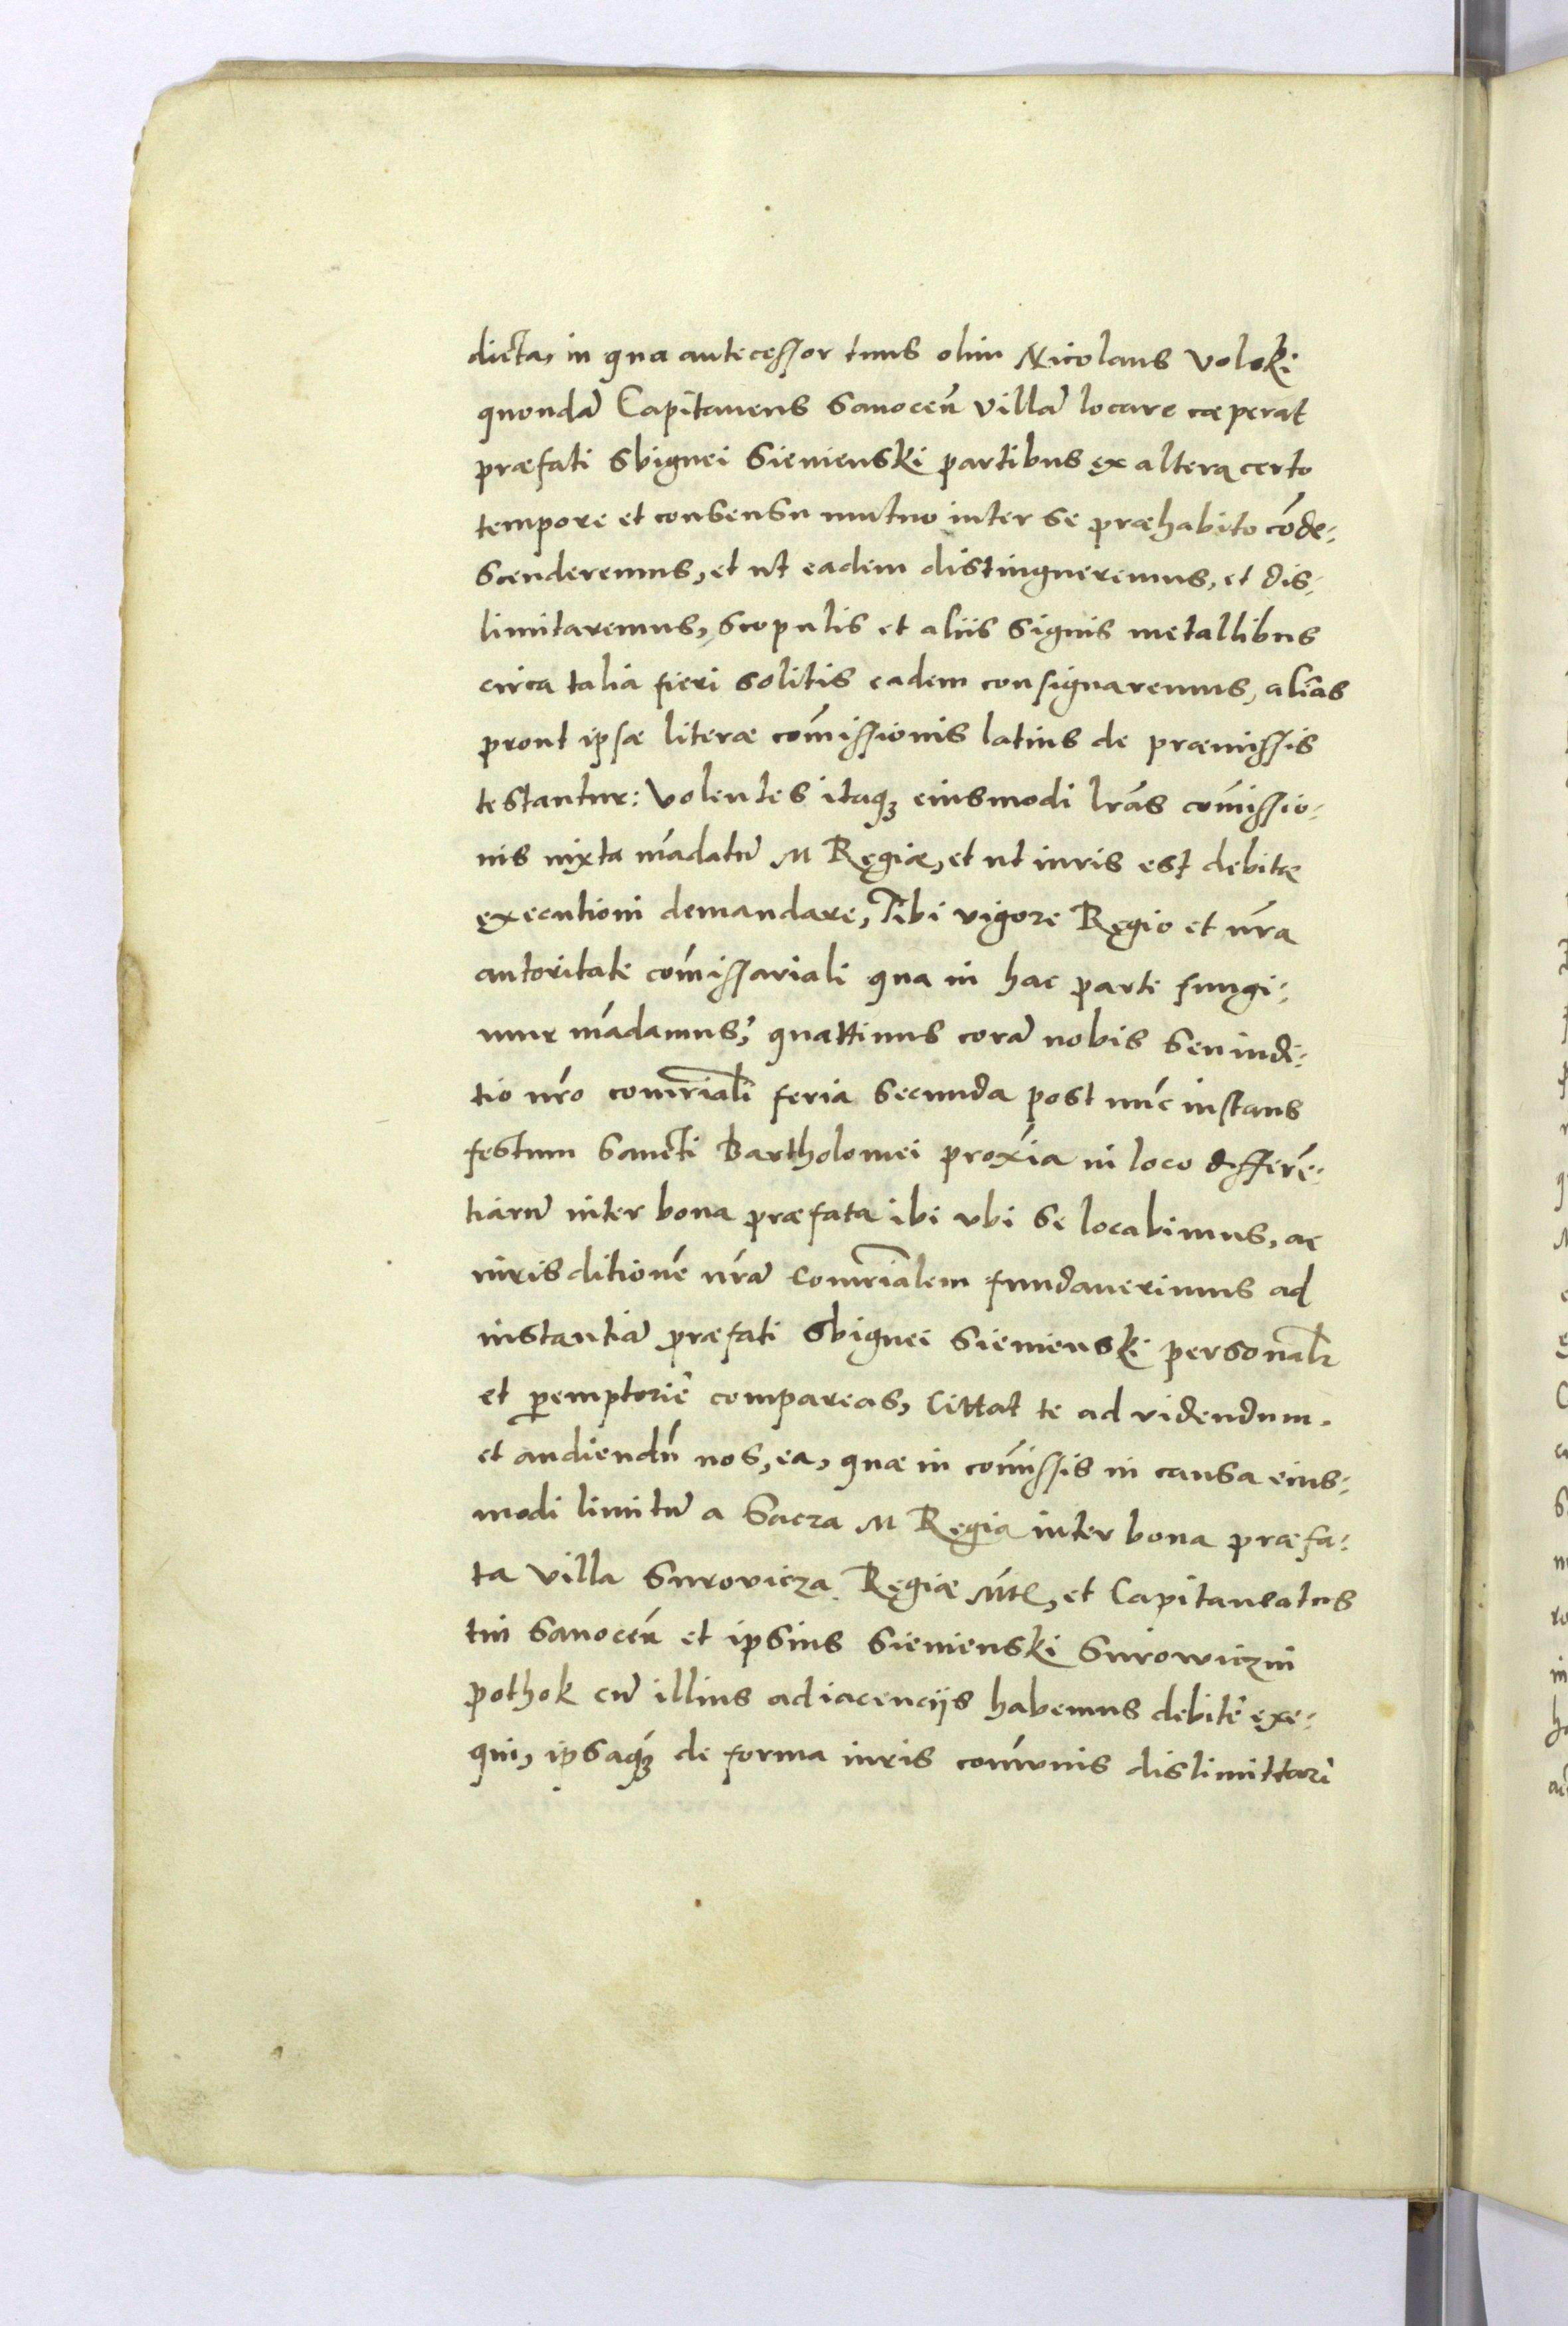 dicta, in qua antecessor tuus olim Nicolaus Volski
quondã Capitaneus Sanoceñ villã locare cæperat
præfati Sbignei Sienienski partibus ex altera certo
tempore et consensu mutuo inter se præhabito cõde-
scenderemus, et ut eadem distingueremus, et dis-
limitaremus, scopulis et aliis signis metallibus
circa talia fieri solitis eadem consignaremus, alias
prout ipsæ literæ com̃issionis latius de præmissis
testantur: Volentes itaqꝫ eiusmodi lr̃as com̃issio-
nis iuxta mãdatũ M Regiæ, et ut iuris est debitæ
executioni demandare, Tibi vigore Regio et nr̃a
autoritate com̃issariali qua in hac parte fungi-
mur mãdamus, quattinus corã nobis seu iudi-
tio nr̃o com̃riali feria secunda post nũc instans
festum Sancti Bartholomei proxĩa in loco differẽ-
tiarũ inter bona præfata ibi ubi se locabimus, ac
iurisditionẽ nr̃ã Com̃rialem fundaverimus ad
instantiã præfati Sbignei Sienienski personalr̃
et p̱emptorie compareas, Cittat te ad videndum.
et audiendũ nos, ea, quæ in com̃issis in causa eius-
modi limitũ a Sacra M Regia inter bona præfa-
ta villa Surovicza Regiæ Mt̃, et Capitaneatus
tui Sanoceñ et ipsius Sienienski Surowiczni
pothok cũ illius adiacencijs habemus debite exe-
qui, ipsaqꝫ de forma iuris com̃unis dislimittari